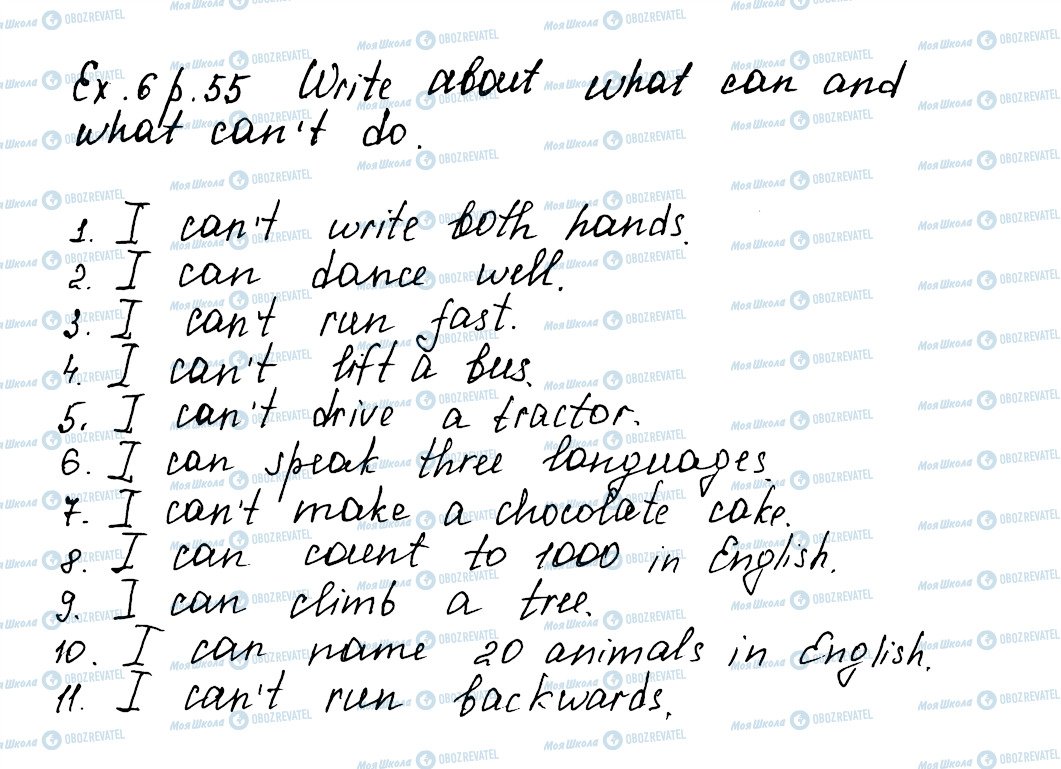 Ex. 6 p. 55 Write about what can and
what can't do.
1. I can't write both hands.
2. I can dance well.
3. I can't run fast.
4. I can't lift a bus.
5. I can't drive a tractor.
6. I can speak three languages.
7. I can't make a chocolate cake.
8. I can count to 1000 in English.
9. I can climb a tree.
10. I can name 20 animals in English.
11. I can't run backwards.